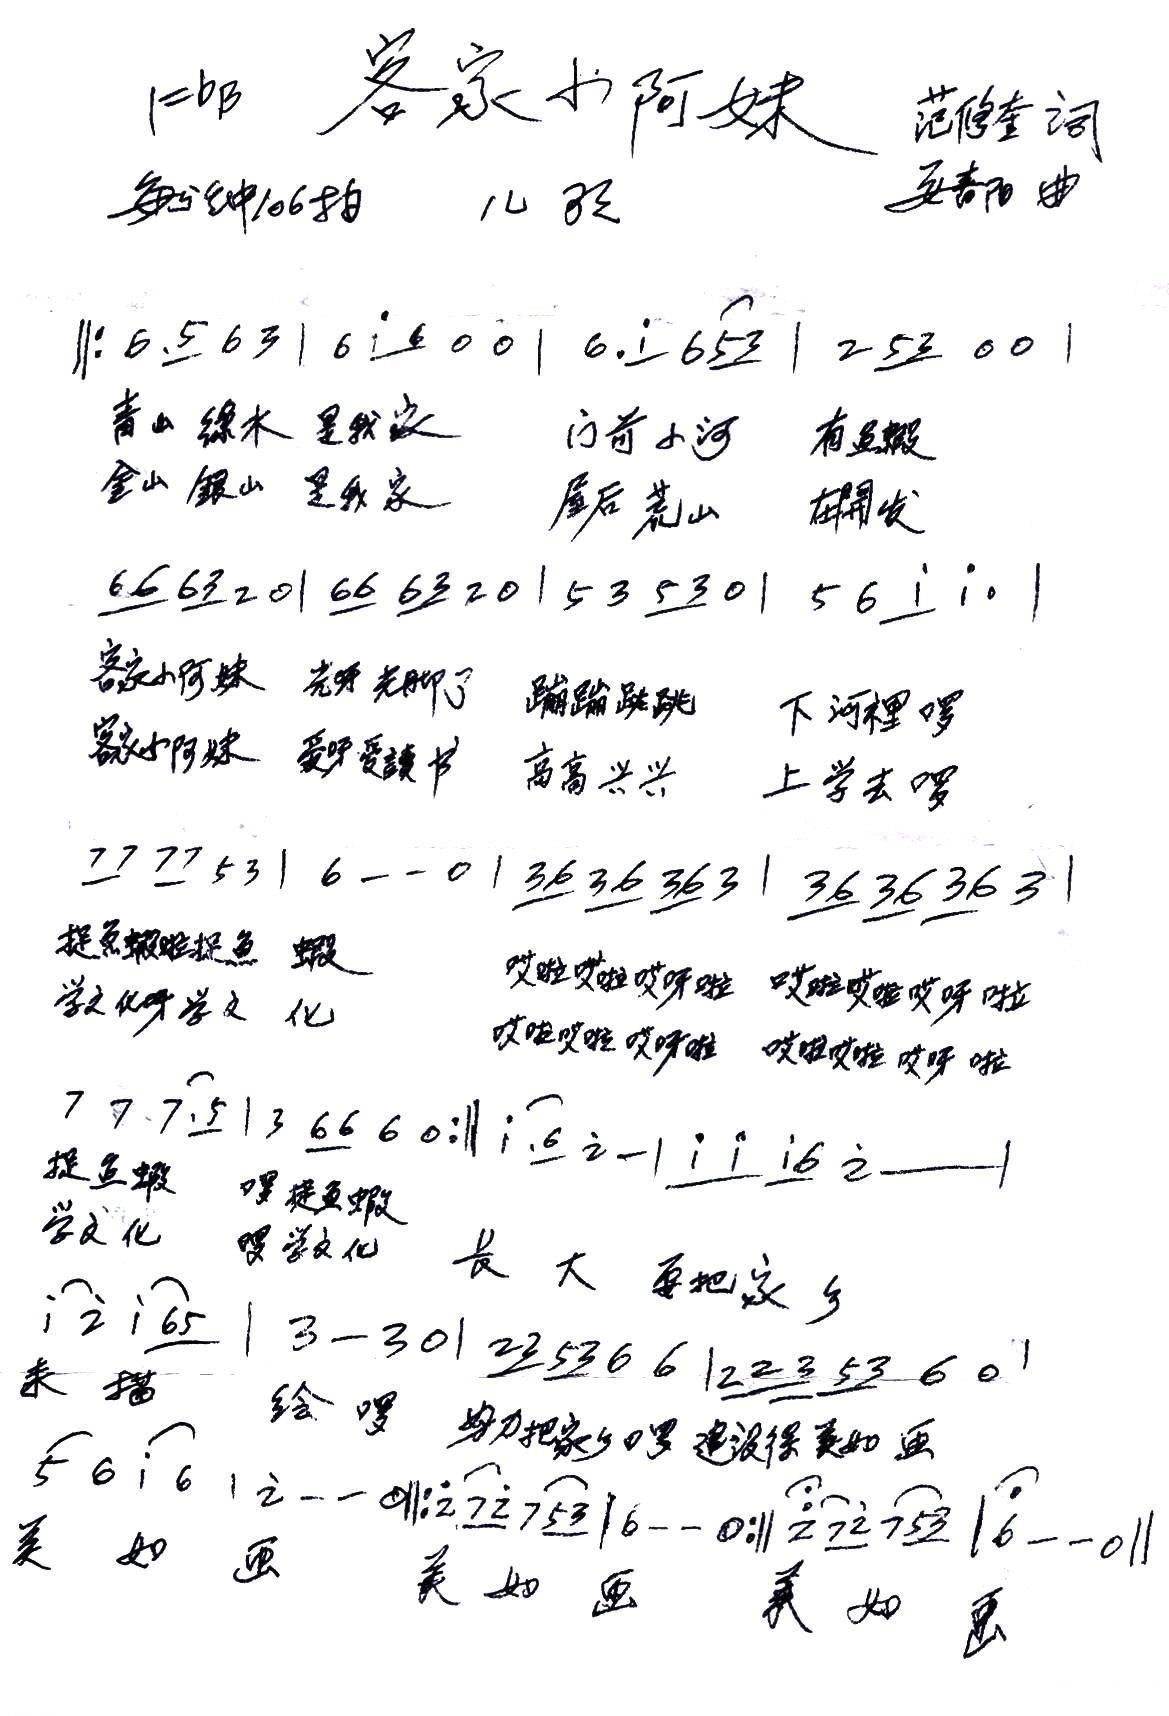 1=bB 客家小阿妹 范修奎 词
每分钟106拍 儿歌 曲
‖: 6.5 6 3 | 6 i 6 0 0 | 6.i 6 5 3 | 2 5 3 0 0 |
青山 绿水 是我家 门前小河 有鱼蝦
金山 銀山 是我家 屋后荒山 在開发
6 6 6 3 2 0 | 6 6 6 3 2 0 | 5 3 5 3 0 | 5 6 i i 0 |
客家小阿妹 光呀光脚丫 蹦蹦跳跳 下河裡啰
客家小阿妹 爱呀爱讀书 高高兴兴 上学去啰
7 7 7 7 5 3 | 6 - - 0 | 3 6 3 6 3 6 3 | 3 6 3 6 3 6 3 |
捉鱼蝦啦捉鱼 蝦 哎啦哎啦哎呀啦 哎啦哎啦哎呀啦
学文化呀学文 化 哎啦哎啦哎呀啦 哎啦哎啦哎呀啦
7 7 7.5 | 3 6 6 6 0 :‖ i.6 2 - | i i i 6 2 - |
捉鱼蝦 啰捉鱼蝦
学文化 啰学文化 长 大 要把家 乡
i 2 i 6 5 | 3 - 3 0 | 2 3 5 3 6 6 | 2 2 3 5 3 6 0 |
来 描 绘 啰 努力把家乡啰 建设得美如 画
5 6 i 6 | 2 - - 0 ‖: 2 7 2 7 5 3 | 6 - - 0 :‖ 2 7 2 7 5 3 | 6 - - 0 ‖
美 如 画 美 如 画 美 如 画